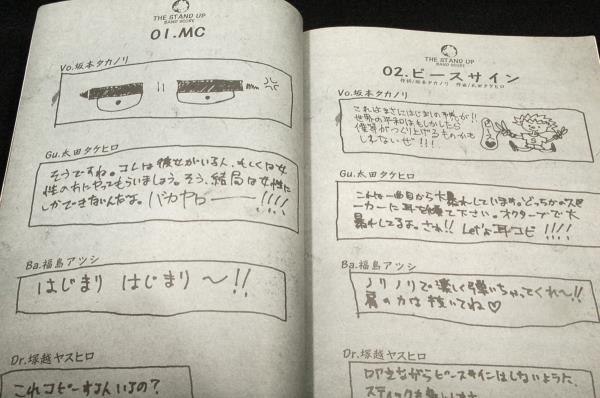 THE STAND UP
BAND SCORE
01.MC
Vo.坂本タカノリ
Gu.太田タケヒロ
そうですね。コレは彼女がいる人、もしくは女
性の方にやってもらいましょう。そう、結局は女性に
しかできないんだよ。バカヤロー――!!!!
Ba.福島アツシ
はじまり はじまり 〜!!
Dr.塚越ヤスヒロ
これコピーする人いるの?
THE STAND UP
BAND SCORE
02.ピースサイン
作詞/坂本タカノリ 作曲/太田タケヒロ
Vo.坂本タカノリ
これはまさにはじまりの予感が!!
世界の平和はもしかしたら
僕等がつくり上げるものかも
しれないぜ!!!
Gu.太田タケヒロ
これは一曲目から大暴れしています。どっちかのスピ
ーカーに耳を傾て下さい。オクターブで大
暴れしてるよ。さぁ!! Let's 耳コピ !!!!
Ba.福島アツシ
ノリノリで楽しく弾いちゃってくれ〜!!
肩の力は抜いてね♡
Dr.塚越ヤスヒロ
叩きながらピースサインはしないように、